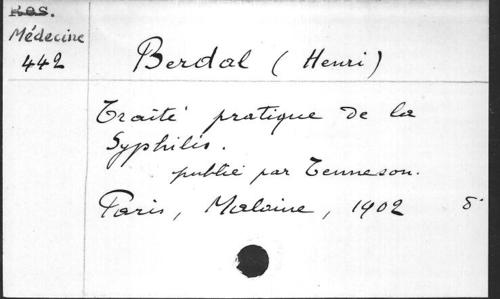 Res.
Médecine
442
Berdal (Henri)
Traité pratique de la
Syphilis.
publié par Tenneson.
Paris, Maloine, 1902 8°